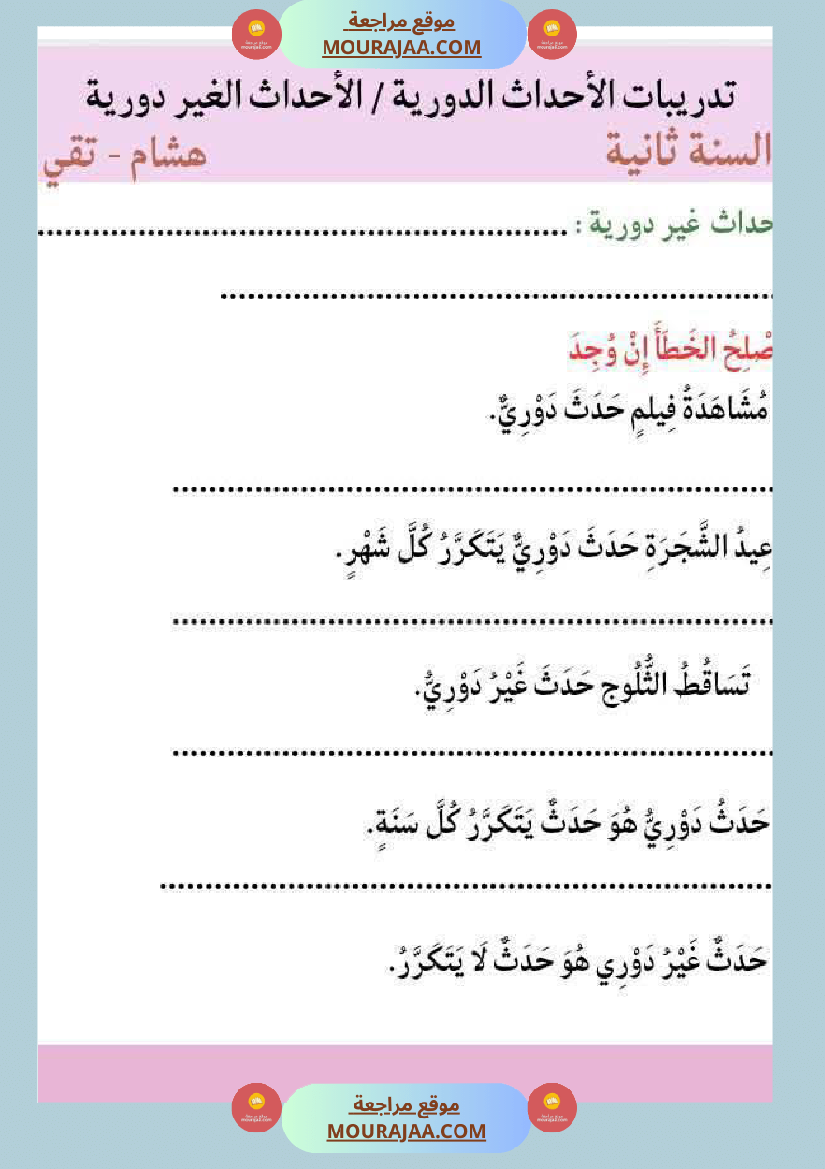 موقع مراجعة
MOURAJAA.COM
تدريبات الأحداث الدورية / الأحداث الغير دورية
السنة ثانية هشام - تقي
حداث غير دورية : ..........................................................
............................................................
صْلِحُ الخَطَأَ إِنْ وُجِدَ
مُشَاهَدَةُ فِيلمٍ حَدَثَ دَوْرِيٌّ.
.................................................................
عِيدُ الشَّجَرَةِ حَدَثَ دَوْرِيٌّ يَتَكَرَّرُ كُلَّ شَهْرٍ.
.................................................................
تَسَاقُطُ الثُّلُوج حَدَثَ غَيْرُ دَوْرِيُّ.
.................................................................
حَدَثُ دَوْرِيُّ هُوَ حَدَثٌ يَتَكَرَّرُ كُلَّ سَنَةٍ.
..................................................................
حَدَثٌ غَيْرُ دَوْرِي هُوَ حَدَثٌ لَا يَتَكَرَّرُ.
موقع مراجعة
MOURAJAA.COM